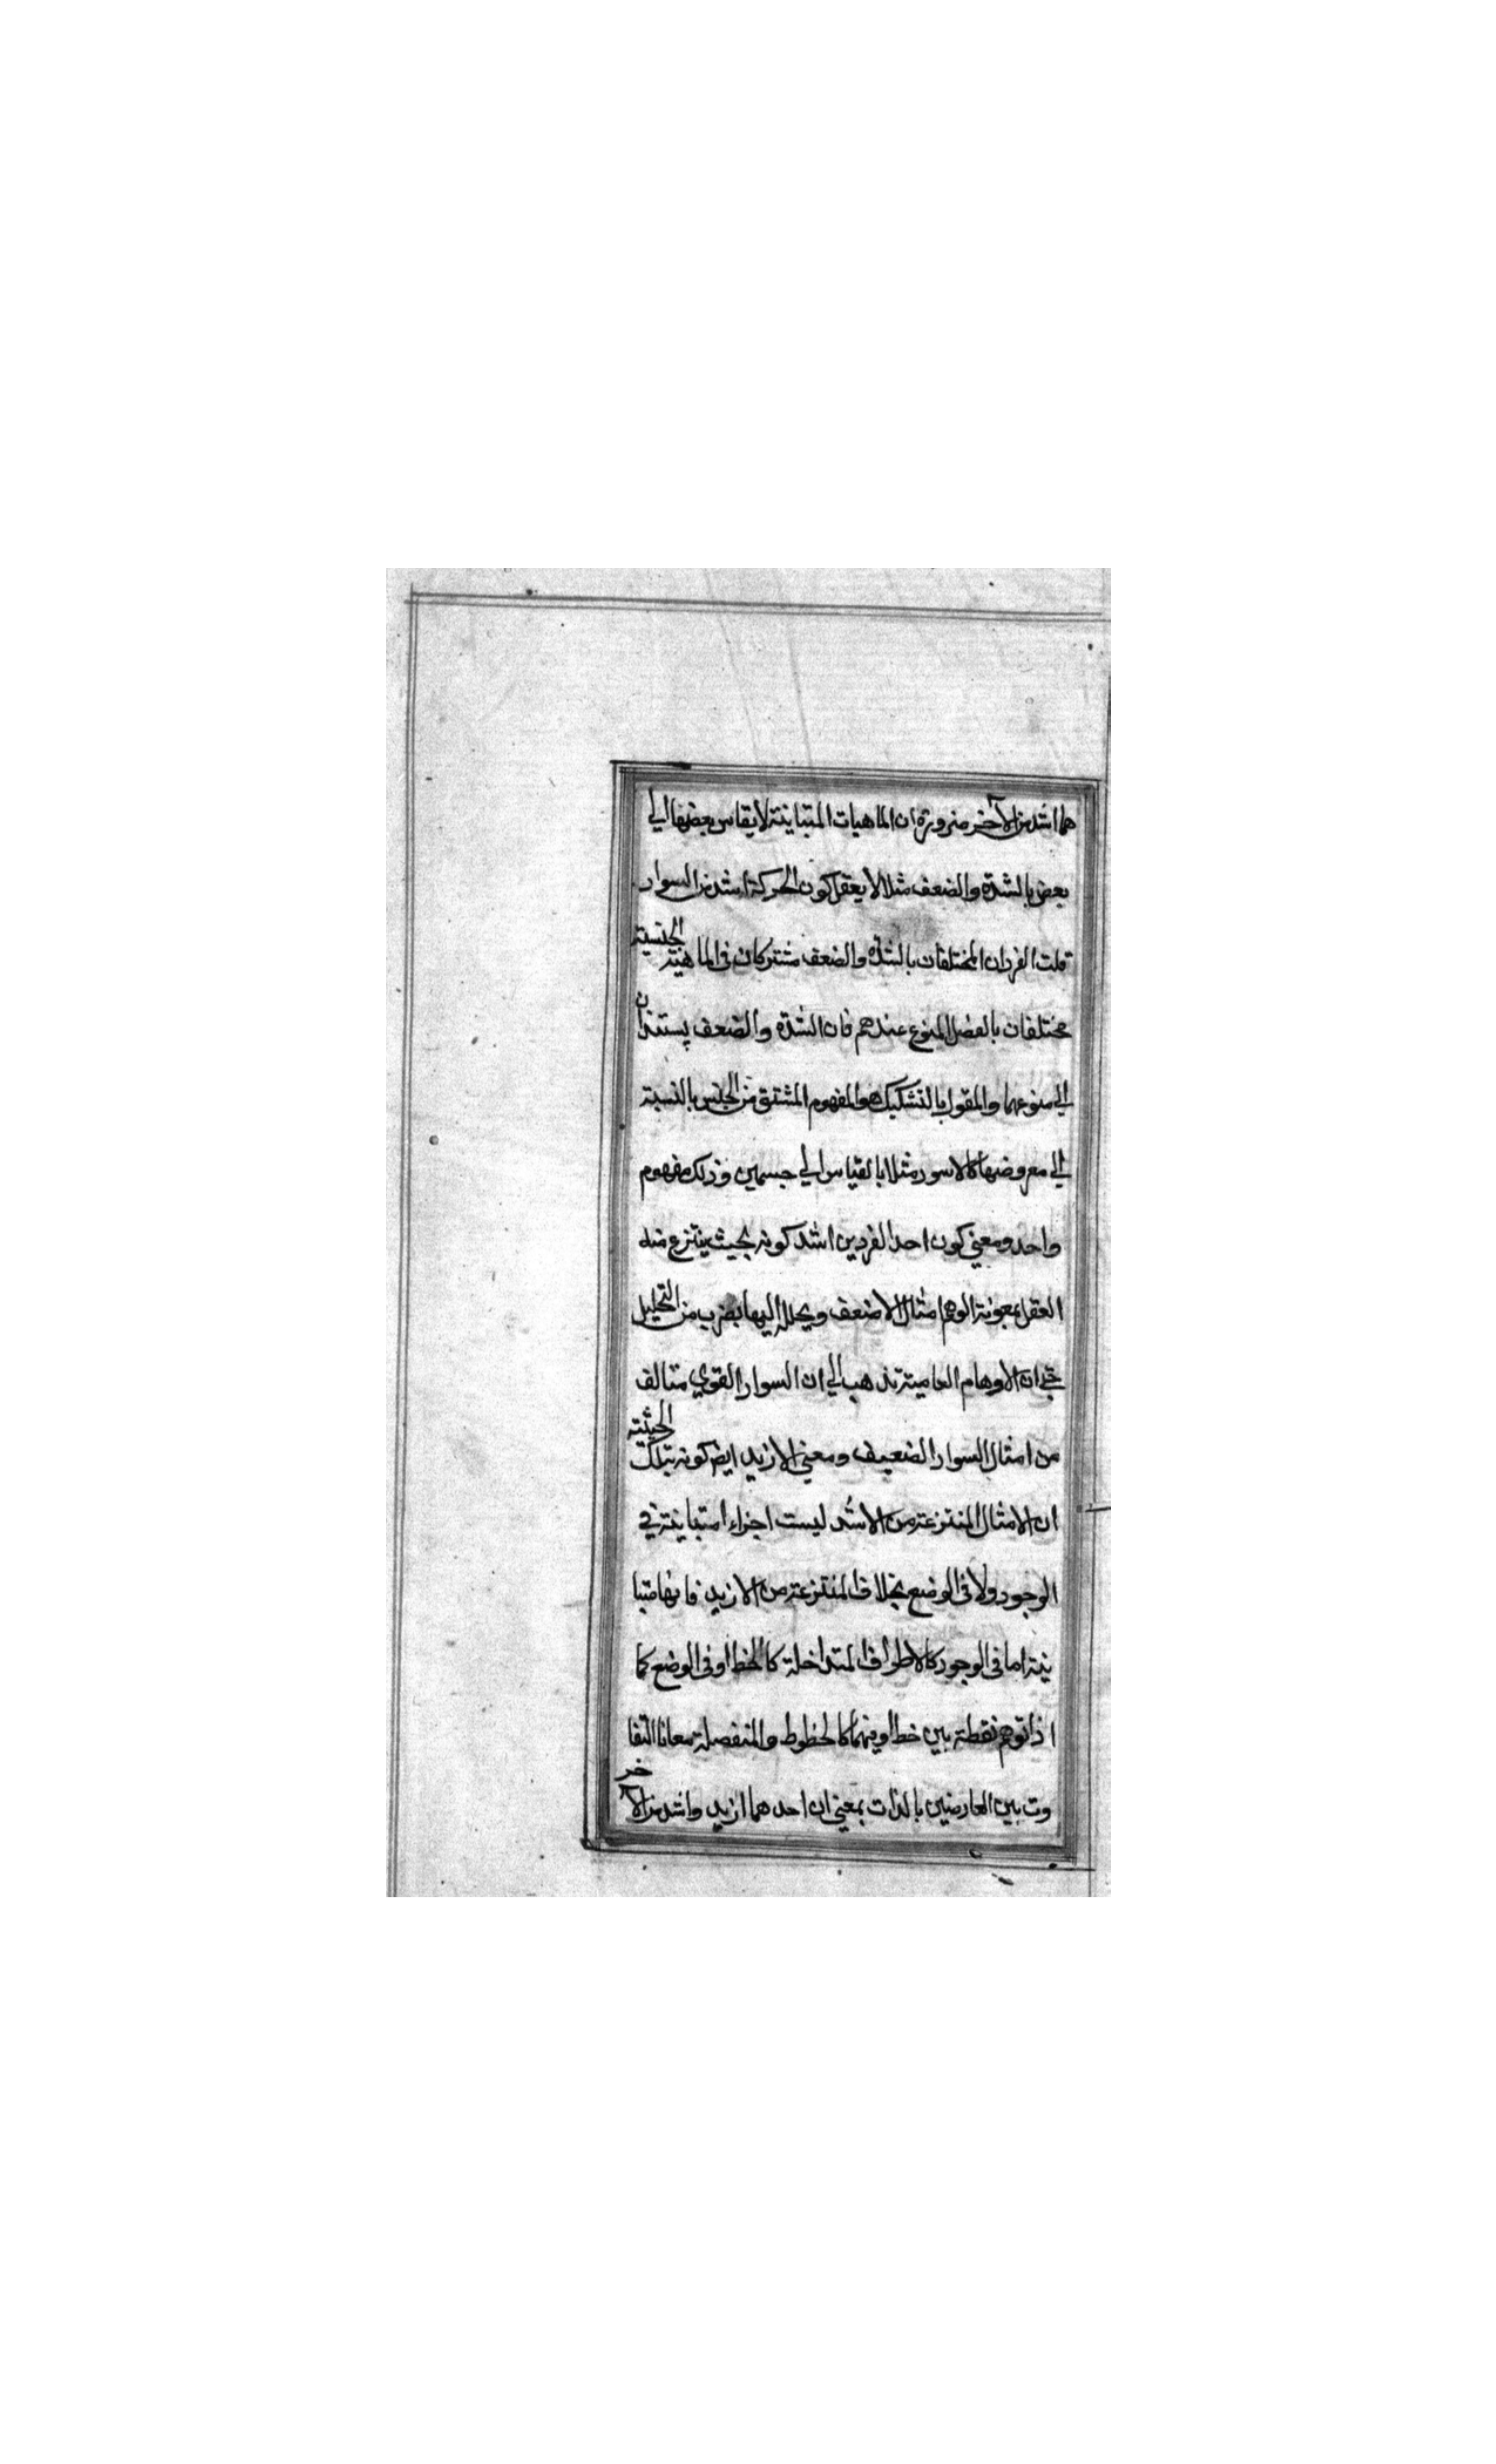 هما اشد من الآخر ضرورة ان الماهيات المتباينة لايقاس بعضها الي
بعض بالشدة والضعف مثلا لا يعقل كون الحركة اشد من السواد
قلت الفردان المختلفان بالشدة والضعف مشتركان في الماهية الجنسية
مختلفان بالفصل المنوع عندهم فان الشدة والضعف يستندان
الي منوعهما والمقول بالتشكيك هو المفهوم المشتق من الجنس بالنسبة
الي معروضها كالاسود مثلا بالقياس الي جسمين وذلك مفهوم
واحد ومعني كون احد الفردين اشد كونه بحيث ينتزع منه
العقل بمعونة الوهم امثال الاضعف ويحلله اليها بضرب من التحليل
حتي ان الاوهام العامية تذهب الي ان السواد القوي متالف
من امثال السواد الضعيف ومعني الازيد ايض كونه بتلك الحيثية
ان الامثال المنتزعة من الاشد ليست اجزاء امتباينة في
الوجود ولا في الوضع بخلاف المنتزعة من الازيد فانها متبا
ينة اما في الوجود كالاطراف المتداخلة كالخط او في الوضع كما
اذا توهم نقطة بين خط او فيهما كالخطوط والمنفصلة معانا التفا
وت بين العارضين بالذات بمعني ان احدهما ازيد واشد من الآخر